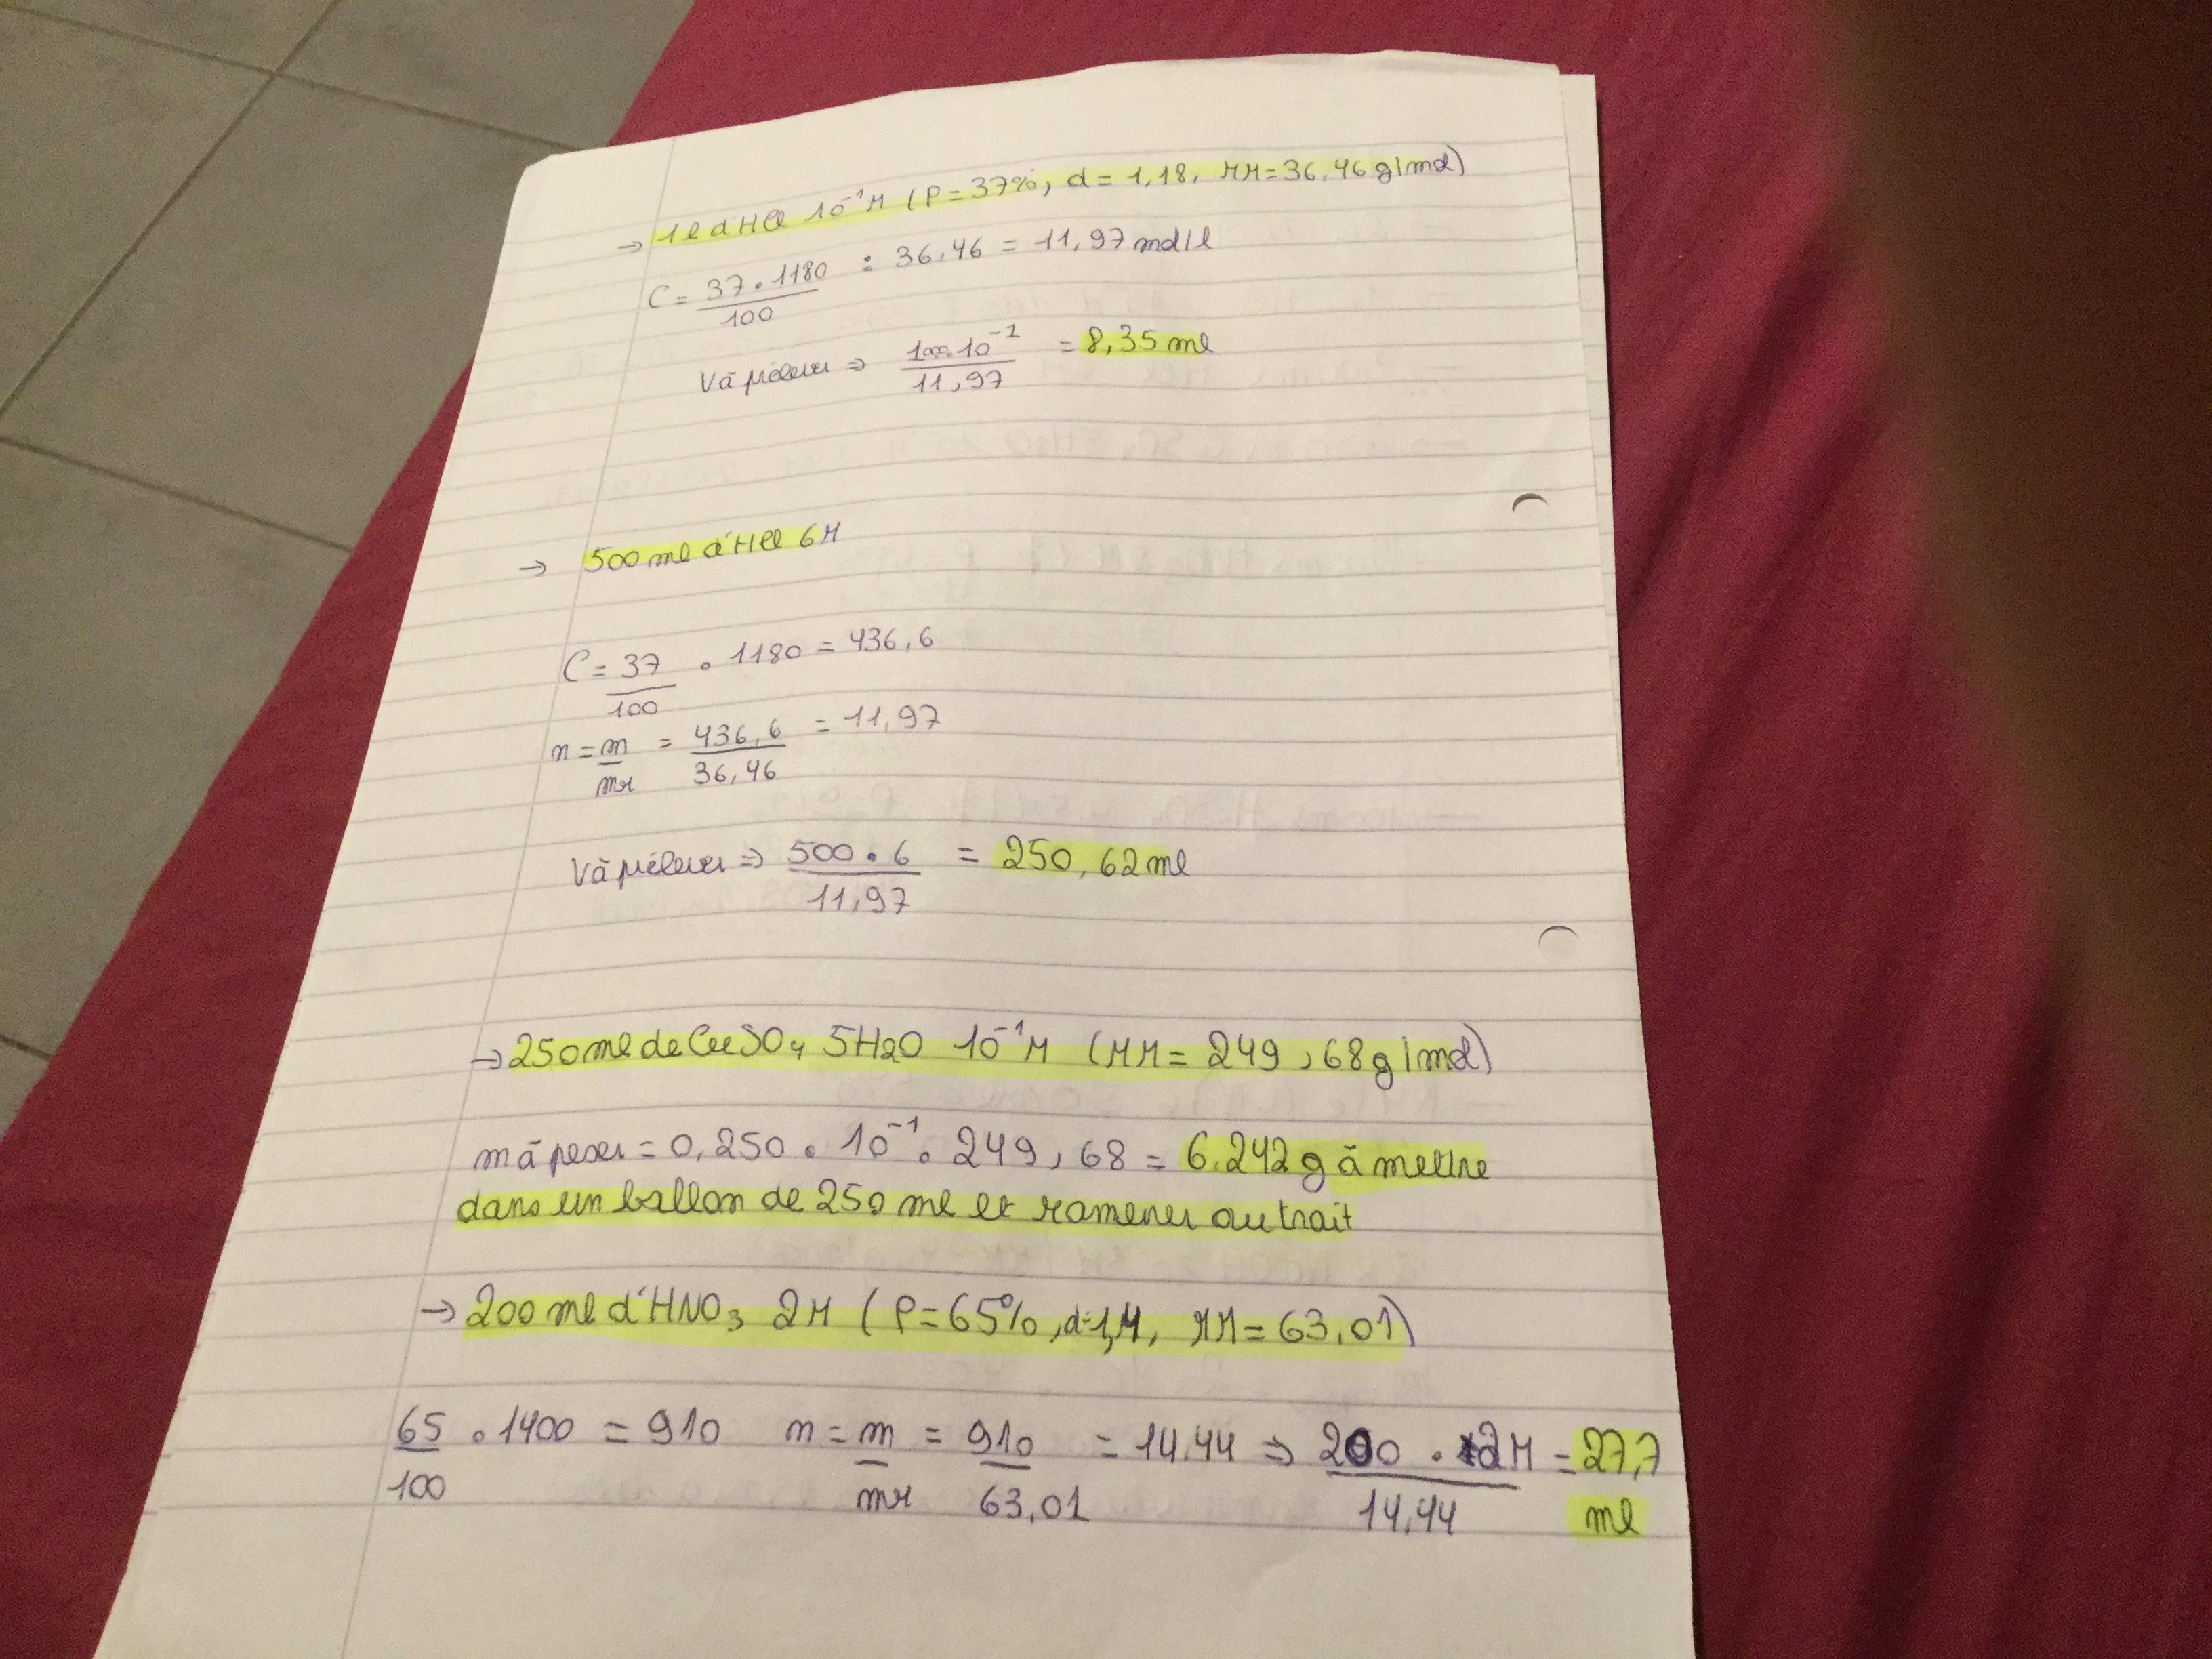 → 1l d'HCl 10⁻¹M (P=37%, d=1,18, MM=36,46g/mol)
C = 37 . 1180 / 100 : 36,46 = 11,97 mol/l
V à prélever ⇒ 1000.10⁻¹ / 11,97 = 8,35 ml
→ 500 ml d'HCl 6M
C = 37 / 100 . 1180 = 436,6
n = m / mr = 436,6 / 36,46 = 11,97
V à prélever ⇒ 500 . 6 / 11,97 = 250,62 ml
→ 250 ml de CuSO₄ 5H₂O 10⁻¹M (MM = 249,68g/mol)
m à peser = 0,250 . 10⁻¹ . 249,68 = 6,242 g à mettre
dans un ballon de 250 ml et ramener au trait
→ 200 ml d'HNO₃ 2M (P=65%, d=1,4, MM=63,01)
65 / 100 . 1400 = 910 n = m / mr = 910 / 63,01 = 14,44 ⇒ 200 . 2M / 14,44 = 27,7
ml